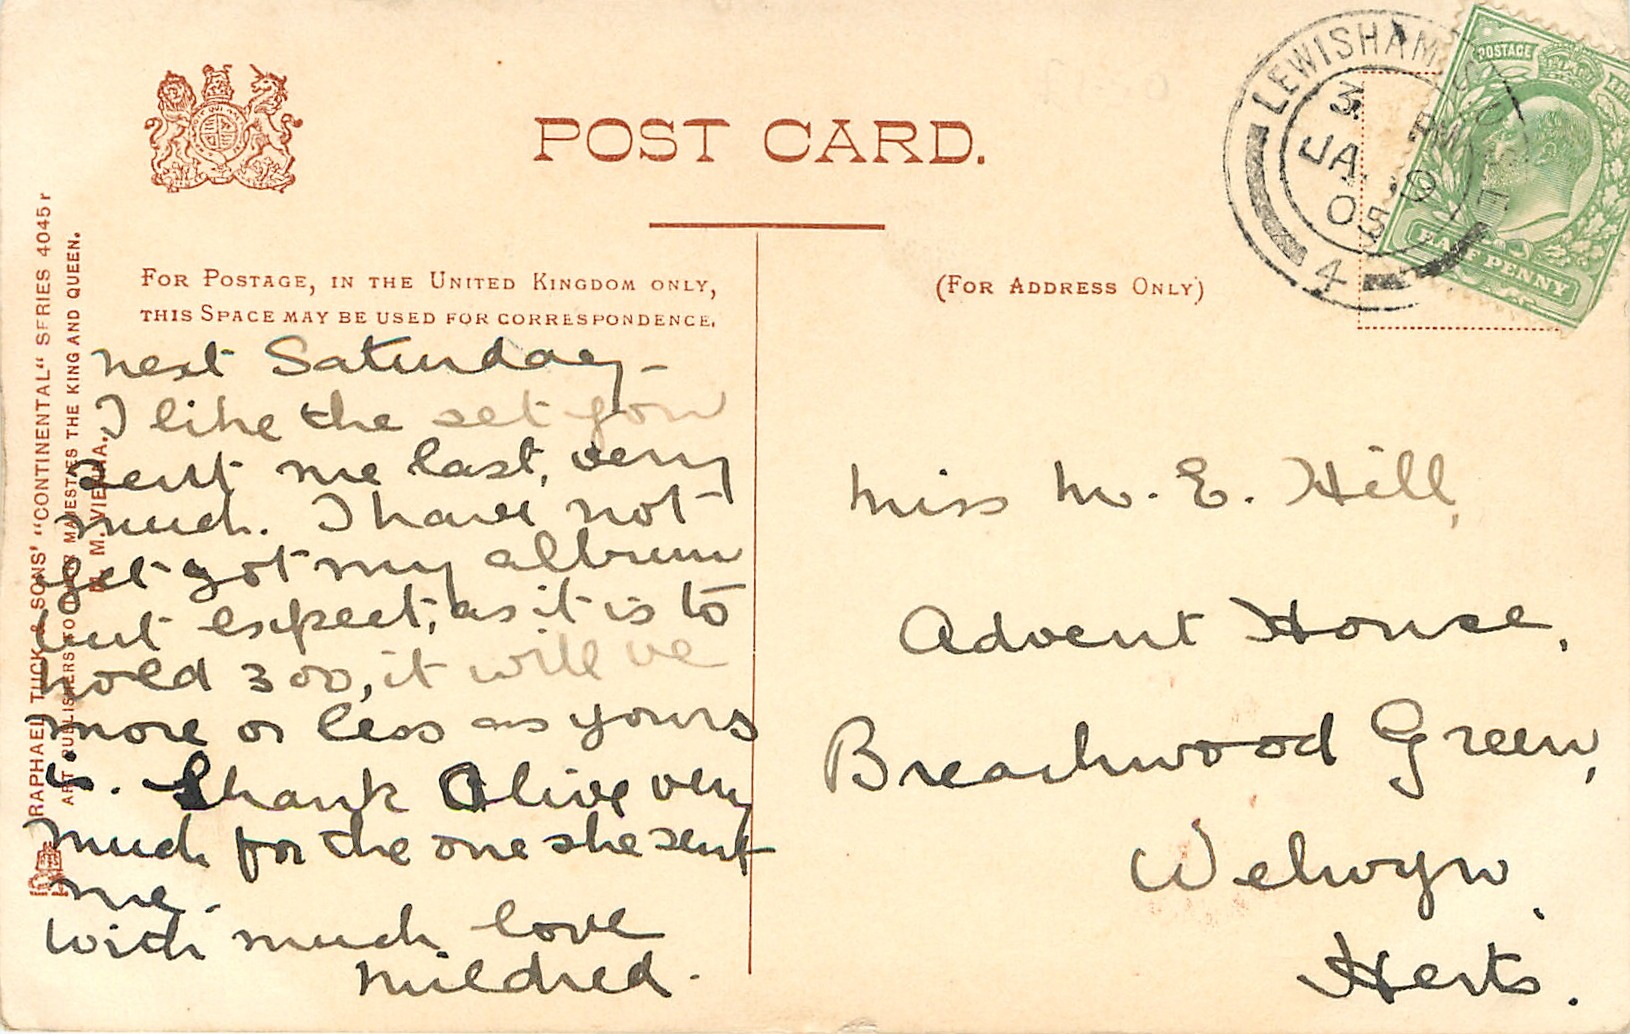 POST CARD.
FOR POSTAGE, IN THE UNITED KINGDOM ONLY,
THIS SPACE MAY BE USED FOR CORRESPONDENCE.
(FOR ADDRESS ONLY)
LEWISHAM
JA
05
4
POSTAGE
HALF PENNY
RAPHAEL TUCK & SONS' "CONTINENTAL" SERIES 4045r
ART PUBLISHERS TO THEIR MAJESTIES THE KING AND QUEEN.
M. M. VIENNA.
next Saturday –
I like the set you
sent me last, very
much. I have not
yet got my album
but expect, as it is to
hold 300, it will be
more or less as yours
is. Thank Olive very
much for the one she sent
me.
With much love
Mildred.
Miss M. E. Hill,
Advent House,
Breachwood Green,
Welwyn.
Herts.